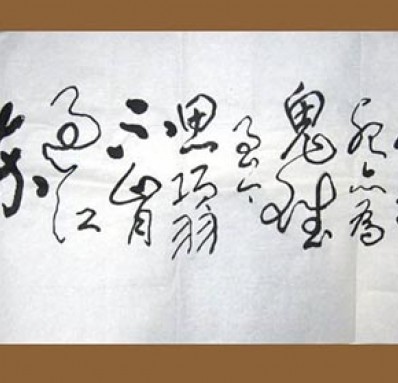 死亦為
鬼雄
至今
思項羽
不肯
過江
东